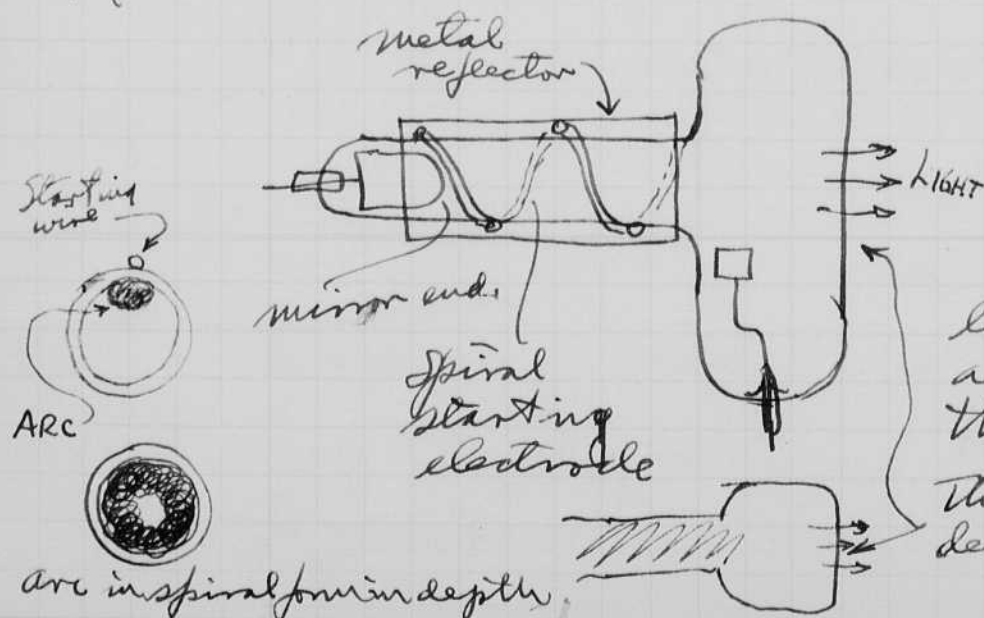 metal
reflector
LIGHT
Starting
wire
mirror end.
Spiral
starting
electrode
ARC
a
th
de
arc in spiral form in depth.